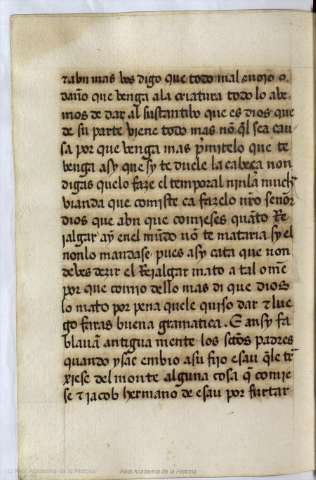 & abn mas vos digo que todo mal enojo o
daño que venga a la criatura todo lo abe
mos de dar al sustantibo que es dios que
de su parte viene todo mas nõ q̃l sea cau
sa por que venga mas p̃mitelo que te
venga asy que sy te duele la cabeça non
digas que lo faze el temporal nin la much
vianda que comiste ca fazelo nr̃o señor
dios que abn que comieses quãto Re
jalgar ay en el mũdo nõ te mataria sy el
non lo mandase pues asy cata que non
debes dezir el Rejalgar mato a tal om̃e
por que comio dello mas di que dios
lo mato por pena que le quiso dar & lue
go faras buena gramatica. E ansy fa
blauã antigua mente los sc̃tos padres
quando ysac embio a su fijo esau q̃ le tr
xiese del monte alguna cosa q̃ comie
se & jacob hermano de esau por furtar
Real Academia de la Historia